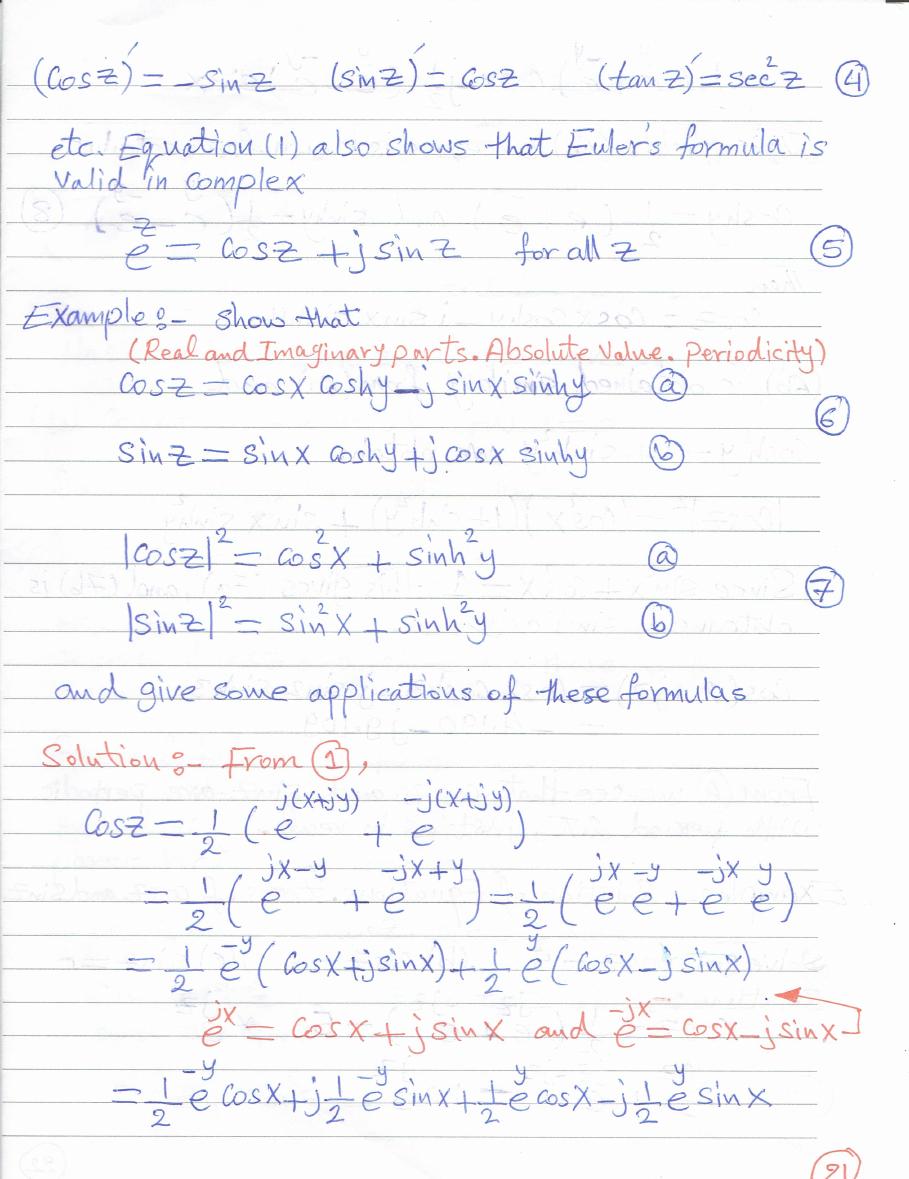 (cosz)' = -sinz (sinz)' = cosz (tanz)' = sec²z ④
etc. Equation (1) also shows that Euler's formula is
valid in complex
e^z = cosz + j sinz for all z ⑤
Example:- show that
(Real and Imaginary parts. Absolute Value. Periodicity)
cosz = cosx coshy - j sinx sinhy ⓐ
⑥
sinz = sinx coshy + j cosx sinhy ⓑ
|cosz|² = cos²x + sinh²y ⓐ
⑦
|sinz|² = sin²x + sinh²y ⓑ
and give some applications of these formulas
Solution:- From ①,
cosz = 1/2 (e^j(x+jy) + e^-j(x+jy))
= 1/2 (e^jx-y + e^-jx+y) = 1/2 (e^jx e^-y + e^-jx e^y)
= 1/2 e^-y (cosx + j sinx) + 1/2 e^y (cosx - j sinx)
e^jx = cosx + j sinx and e^-jx = cosx - j sinx
= 1/2 e^-y cosx + j 1/2 e^-y sinx + 1/2 e^y cosx - j 1/2 e^y sinx